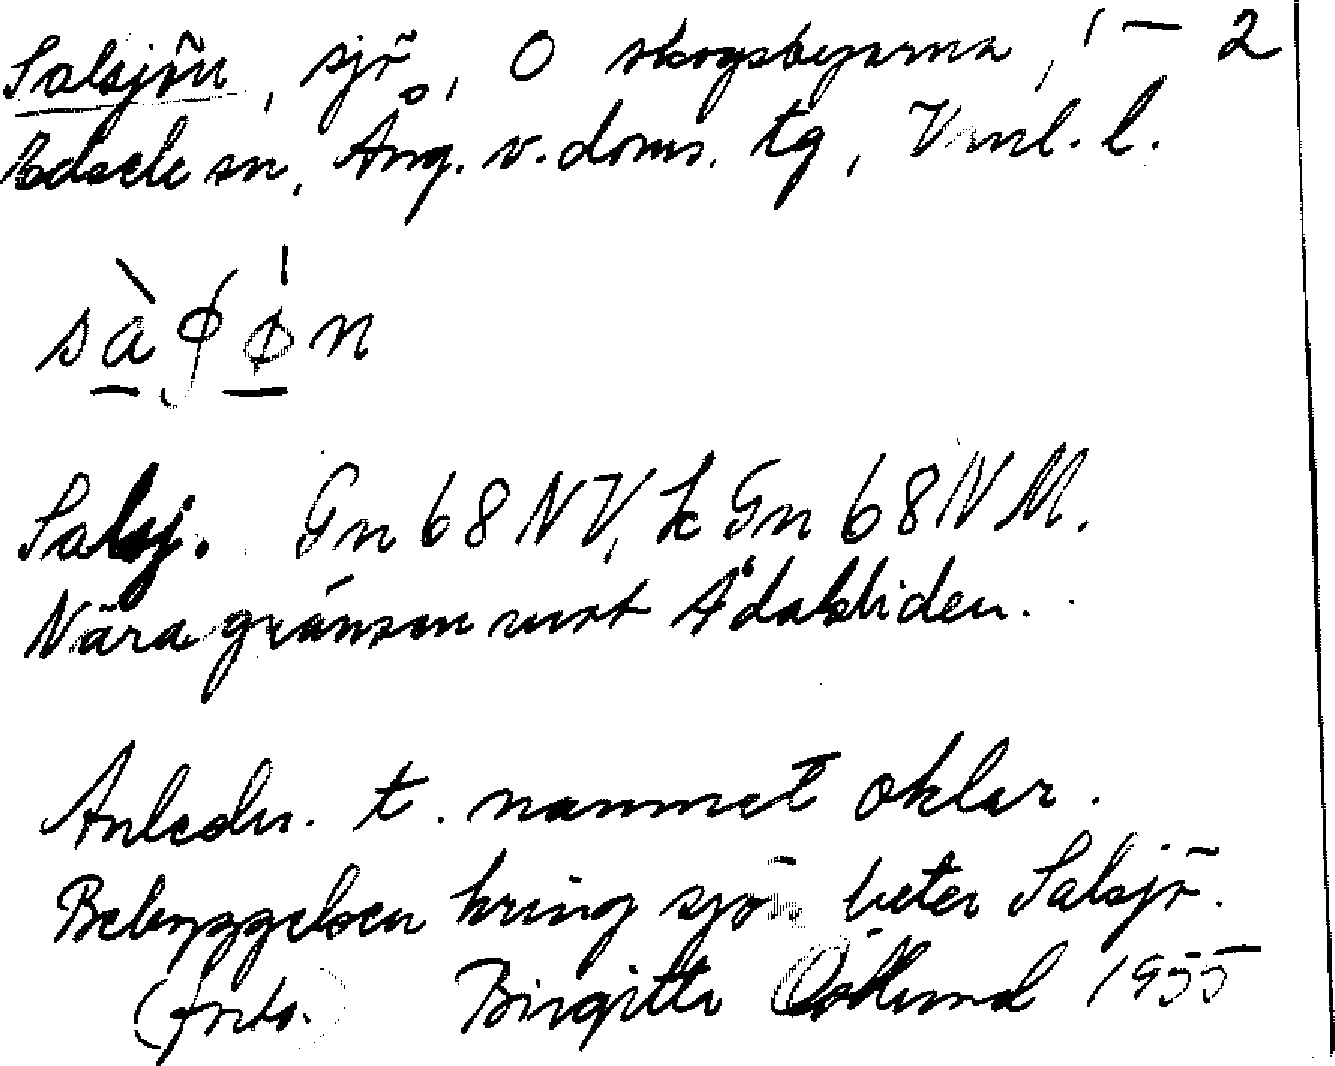 Salsjön, sjö, O skogsbyarna, 1 - 2
Edsele sn, Ång. v. doms. tg, Vnl. l.
Salsj. Gn 68 NV, k Gn 68 NM.
Nära gränsen mot Ådalsliden.
Anledn. t. namnet oklar.
Bebyggelsen kring sjön heter Salsjö.
(forts.) Birgitta Östlund 1955